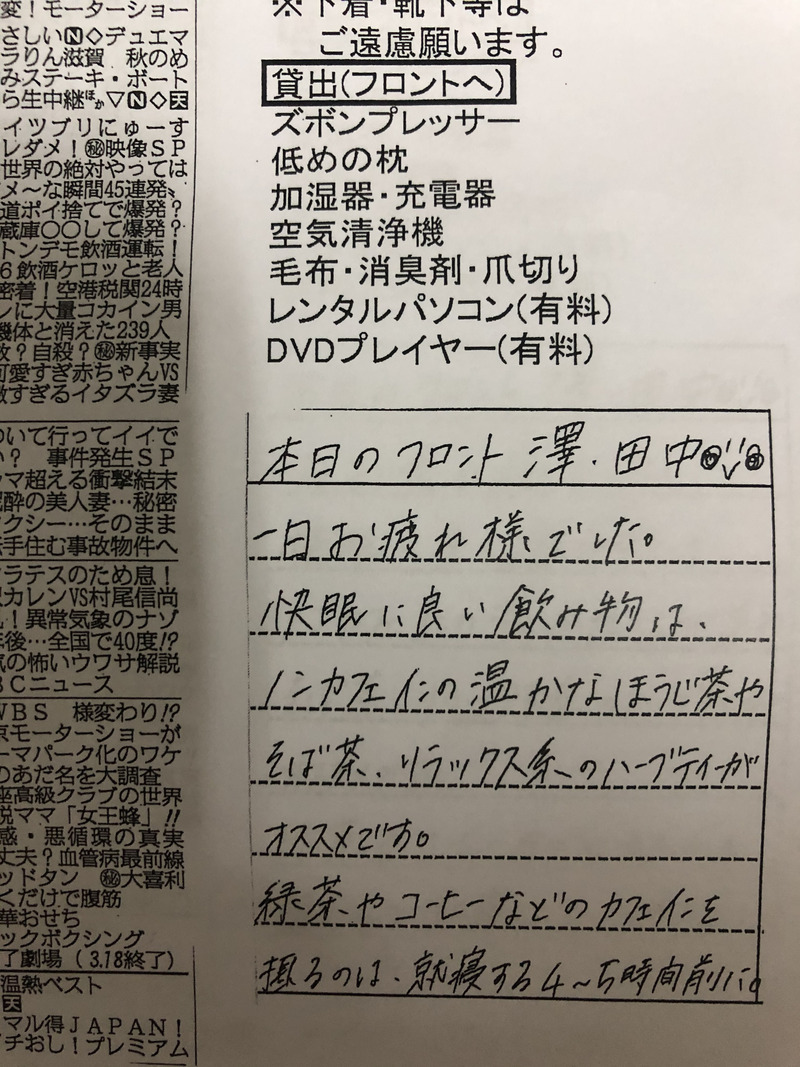 変！モーターショー
さしい🄽◇デュエマ
ラりん滋賀　秋のめ
みステーキ・ボート
ら生中継ほか▽🄽◇天
イツブリにゅーす
レダメ！㊙映像ＳＰ
世界の絶対やっては
メ～な瞬間45連発
道ポイ捨てで爆発？
蔵庫〇〇して爆発？
トンデモ飲酒運転！
６飲酒ケロッと老人
密着！空港税関24時
ンに大量コカイン男
機体と消えた239人
故？自殺？㊙新事実
可愛すぎ赤ちゃんVS
激すぎるイタズラ妻
ついて行ってイイで
い？　事件発生ＳＰ
ラマ超える衝撃結末
泥酔の美人妻…秘密
タクシー…そのまま
手住む事故物件へ
ラテスのため息！
カレンVS村尾信尚
！異常気象のナゾ
年後…全国で40度!?
気の怖いウワサ解説
ＢＣニュース
ＷＢＳ　様変わり!?
京モーターショーが
ーマパーク化のワケ
のあだ名を大調査
座高級クラブの世界
説ママ「女王蜂」!!
感・悪循環の真実
丈夫？血管病最前線
ッドタン　㊙大喜利
くだけで腹筋
華おせち
ックボクシング
了劇場（3.18終了）
温熱ベスト
天
マル得ＪＡＰＡＮ！
チおし！プレミアム
※下着・靴下等は
ご遠慮願います。
貸出(フロントへ)
ズボンプレッサー
低めの枕
加湿器・充電器
空気清浄機
毛布・消臭剤・爪切り
レンタルパソコン(有料)
DVDプレイヤー(有料)
本日のフロント 澤・田中
一日お疲れ様でした。
快眠に良い飲み物は、
ノンカフェインの温かなほうじ茶や
そば茶、リラックス系のハーブティーが
オススメです。
緑茶やコーヒーなどのカフェインを
摂るのは、就寝する4～5時間前に。